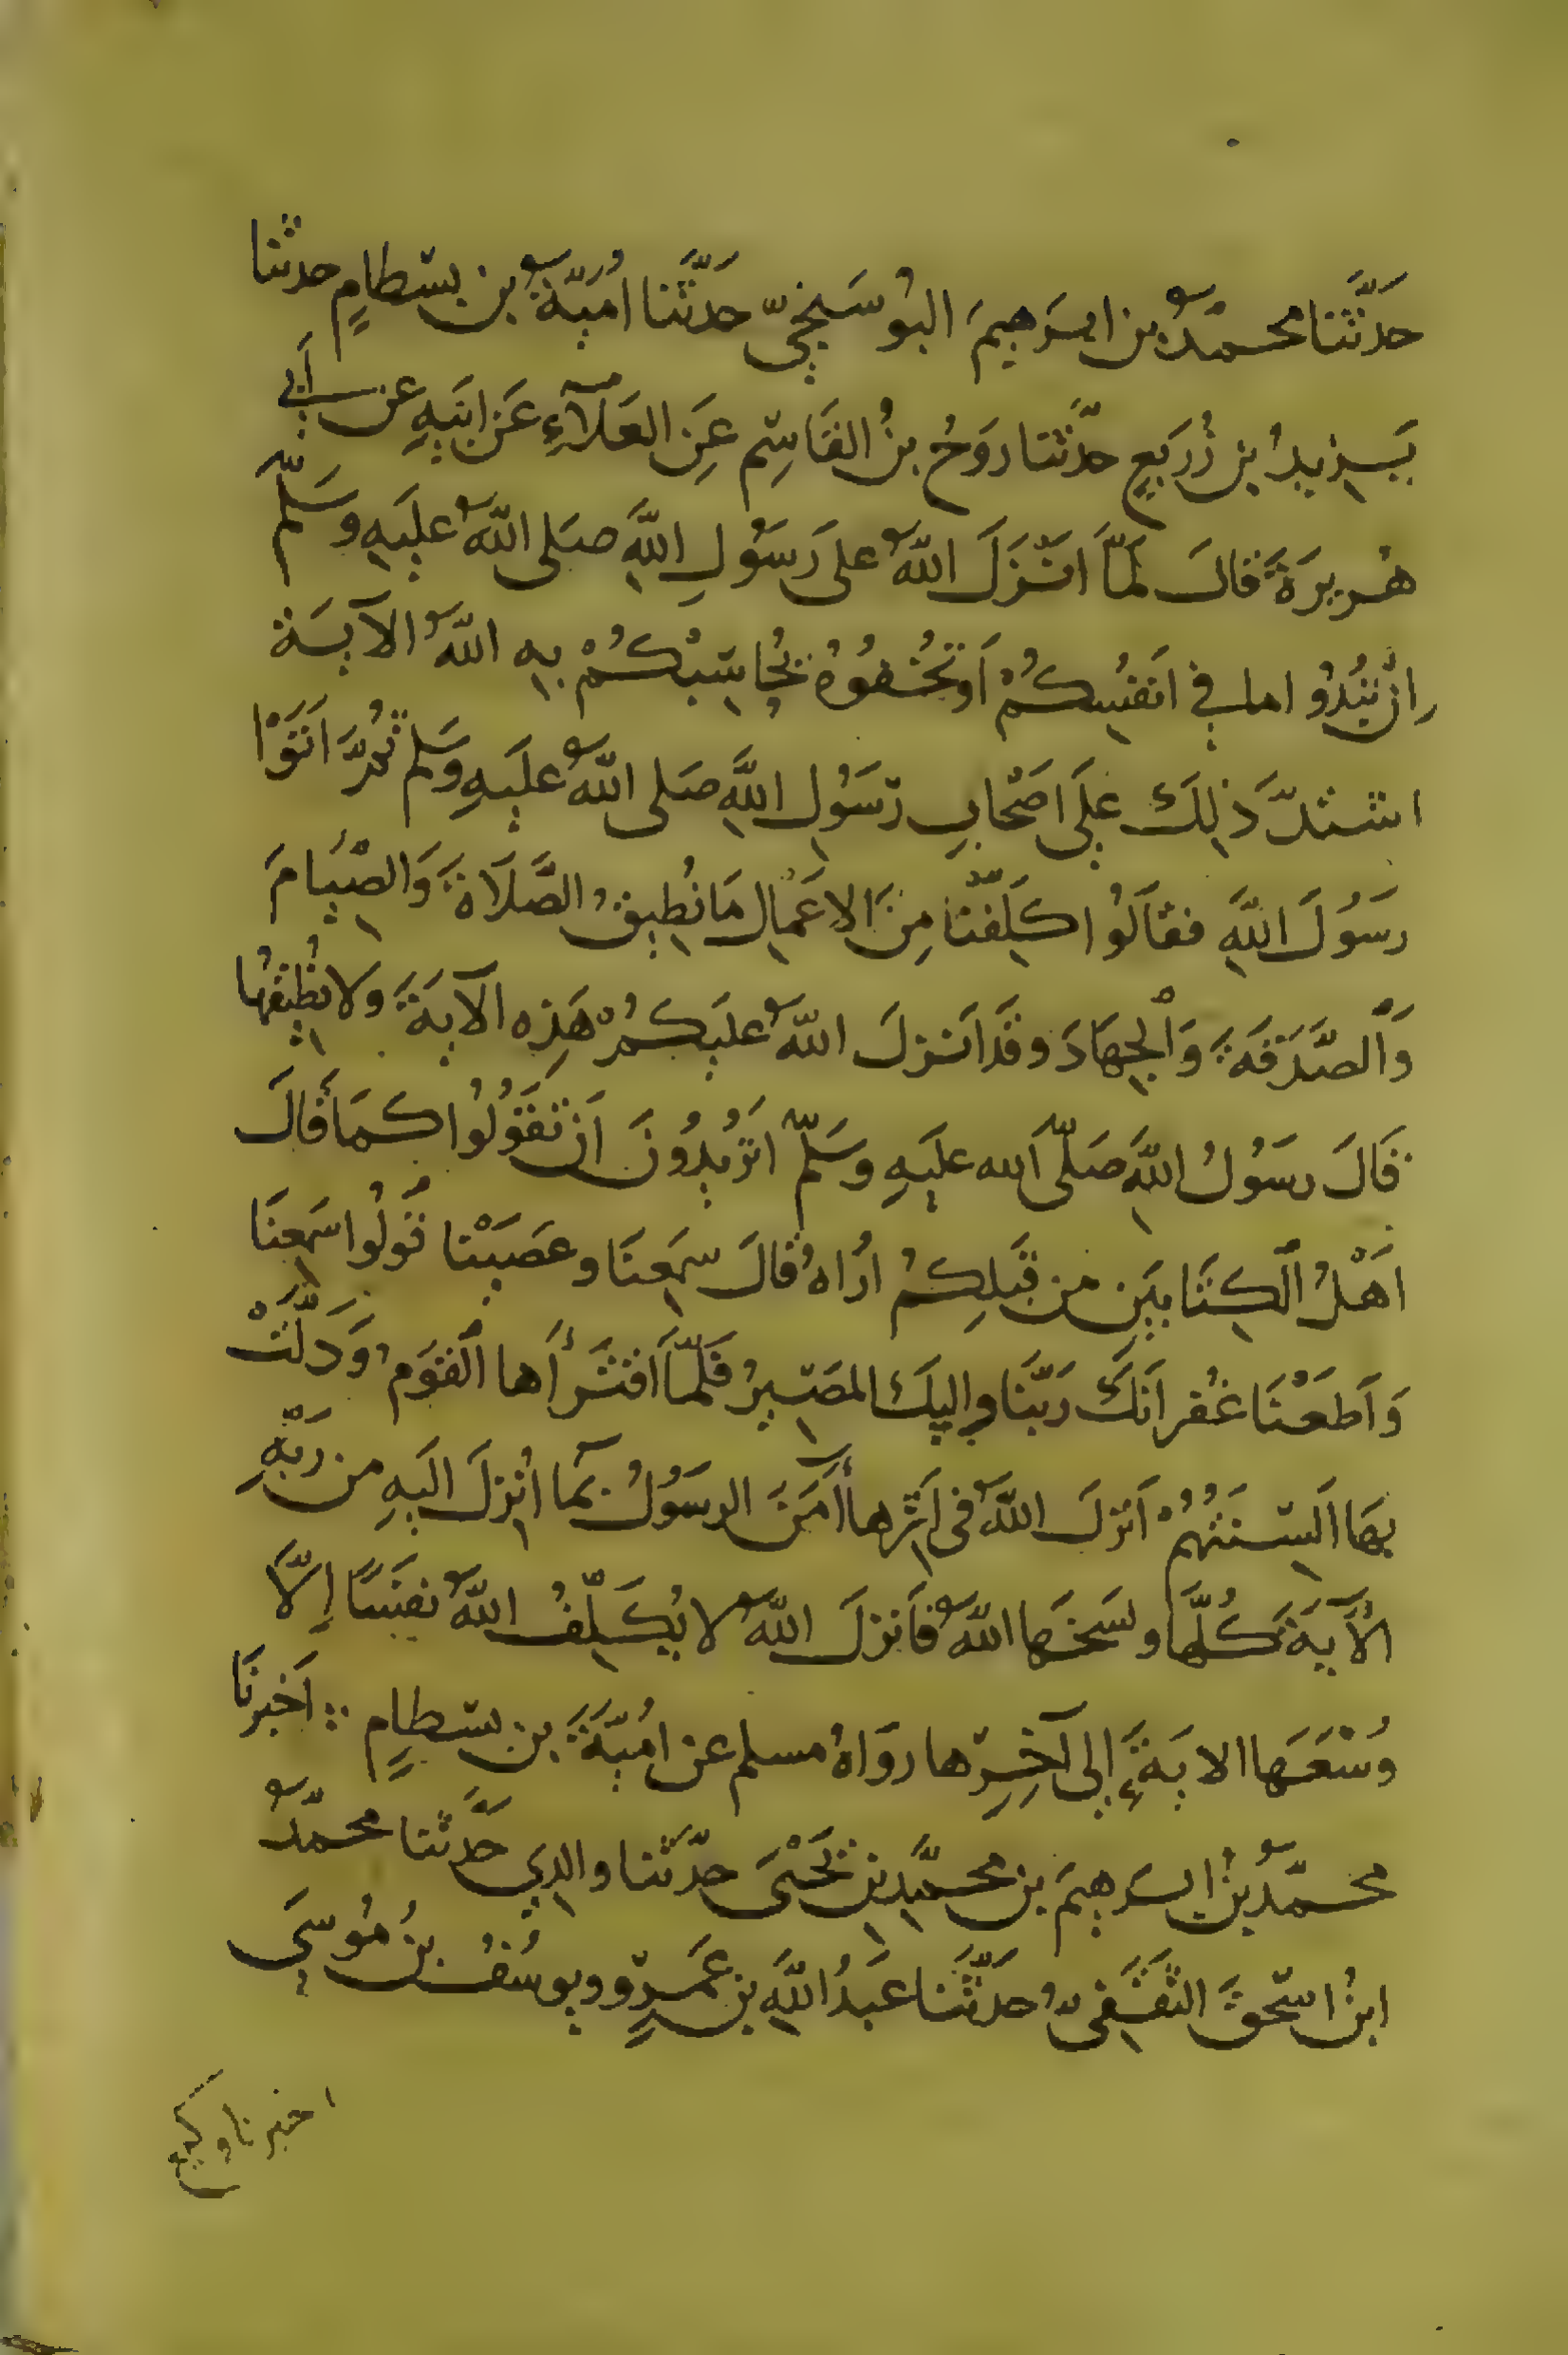 حَدَّثَنا محمّدُ بن ابرهيمَ البُوسَنجِيّ حَدّثَنا اُمَيّةُ بن بسْطامٍ حدثنا
يَزِيدُ بن زُرَيعٍ حدَّثنا رَوحُ بنُ القَاسِم عَنِ العَلآءِ عَن ابيَهِ عن أبي
هُريرَةَ قالَ لمّا انْزَلَ اللّهُ على رَسُولِ اللهِ صَلى اللّهُ عليَهِ وسَلّم
اِنْ تُبْدُوا ما في اَنفُسِكُمْ اَوتُخْفُوهُ يُحاسِبْكُمْ بِهِ اللّهُ الآيَة
اشتدَّ ذلِكَ علَى اصَحابِ رسَوُلِ اللهِ صَلى اللّهُ عليَهِ وسَلم ثُمَّ اَتَوْا
رسَوُلَ اللهِ فقالَوُا كلِّفنَا مِنَ الاعَمالِ مَا نُطيِقُ الصَّلاةَ وَالصِّيامَ
وَالصَّدَقَةَ وَالجِهَادَ وقَدَ انزلَ اللّهُ عليَكمُ هَذِه الآيَةَ ولا نُطِيقُها
قَالَ رسَوُلُ اللهِ صَلّى الله عليَهِ وسَلّم اتَرُيدُونَ اَن تَقوُلُوا كمَا قالَ
اَهْلُ الكِتَابيَنِ من قَبلِكُم اُراهُ قالَ سَمِعنَا وعَصَيْنا قُولُوا سَمِعنَا
وَاَطَعْنَا غُفرانَكَ رَبَّنَا واِليكَ المصَيرُ فَلَمّا اقتَرأَها القَومُ وَدَلَّتْ
بِهَا اَلسِنَتهُمْ اَنزلَ اللّهُ في اَثَرِها أمَنَ الرسَوُلُ بمآ اُنزِلَ اليَهِ من رَبِّهِ
الآيَةَ كُلّها ونسَخَها اللّهُ فاَنزلَ اللّهُ لا يُكَلِّفُ اللّهُ نفَسًا اِلّا
وُسْعَهَا الايَةَ إلى آخِرِها روَاهُ مسلم عن اُميّةَ بن بسْطامٍ ∴ اَخبرنَا
محمّدُ بنُ ابرهِيمَ بن محمَّدِ بن يَحْيَى حدّثنا والدِي حَدَّثنا محمّدُ
ابنُ اسْحقَ الثَّقَفيُّ حَدَّثَنا عَبدُ اللهِ بن عَمرٍو ويوسُفُ بنُ مُوسَى
اخبرنا وكيع